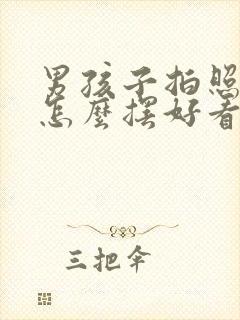 男孩子拍照
怎麼摆好看
三把伞